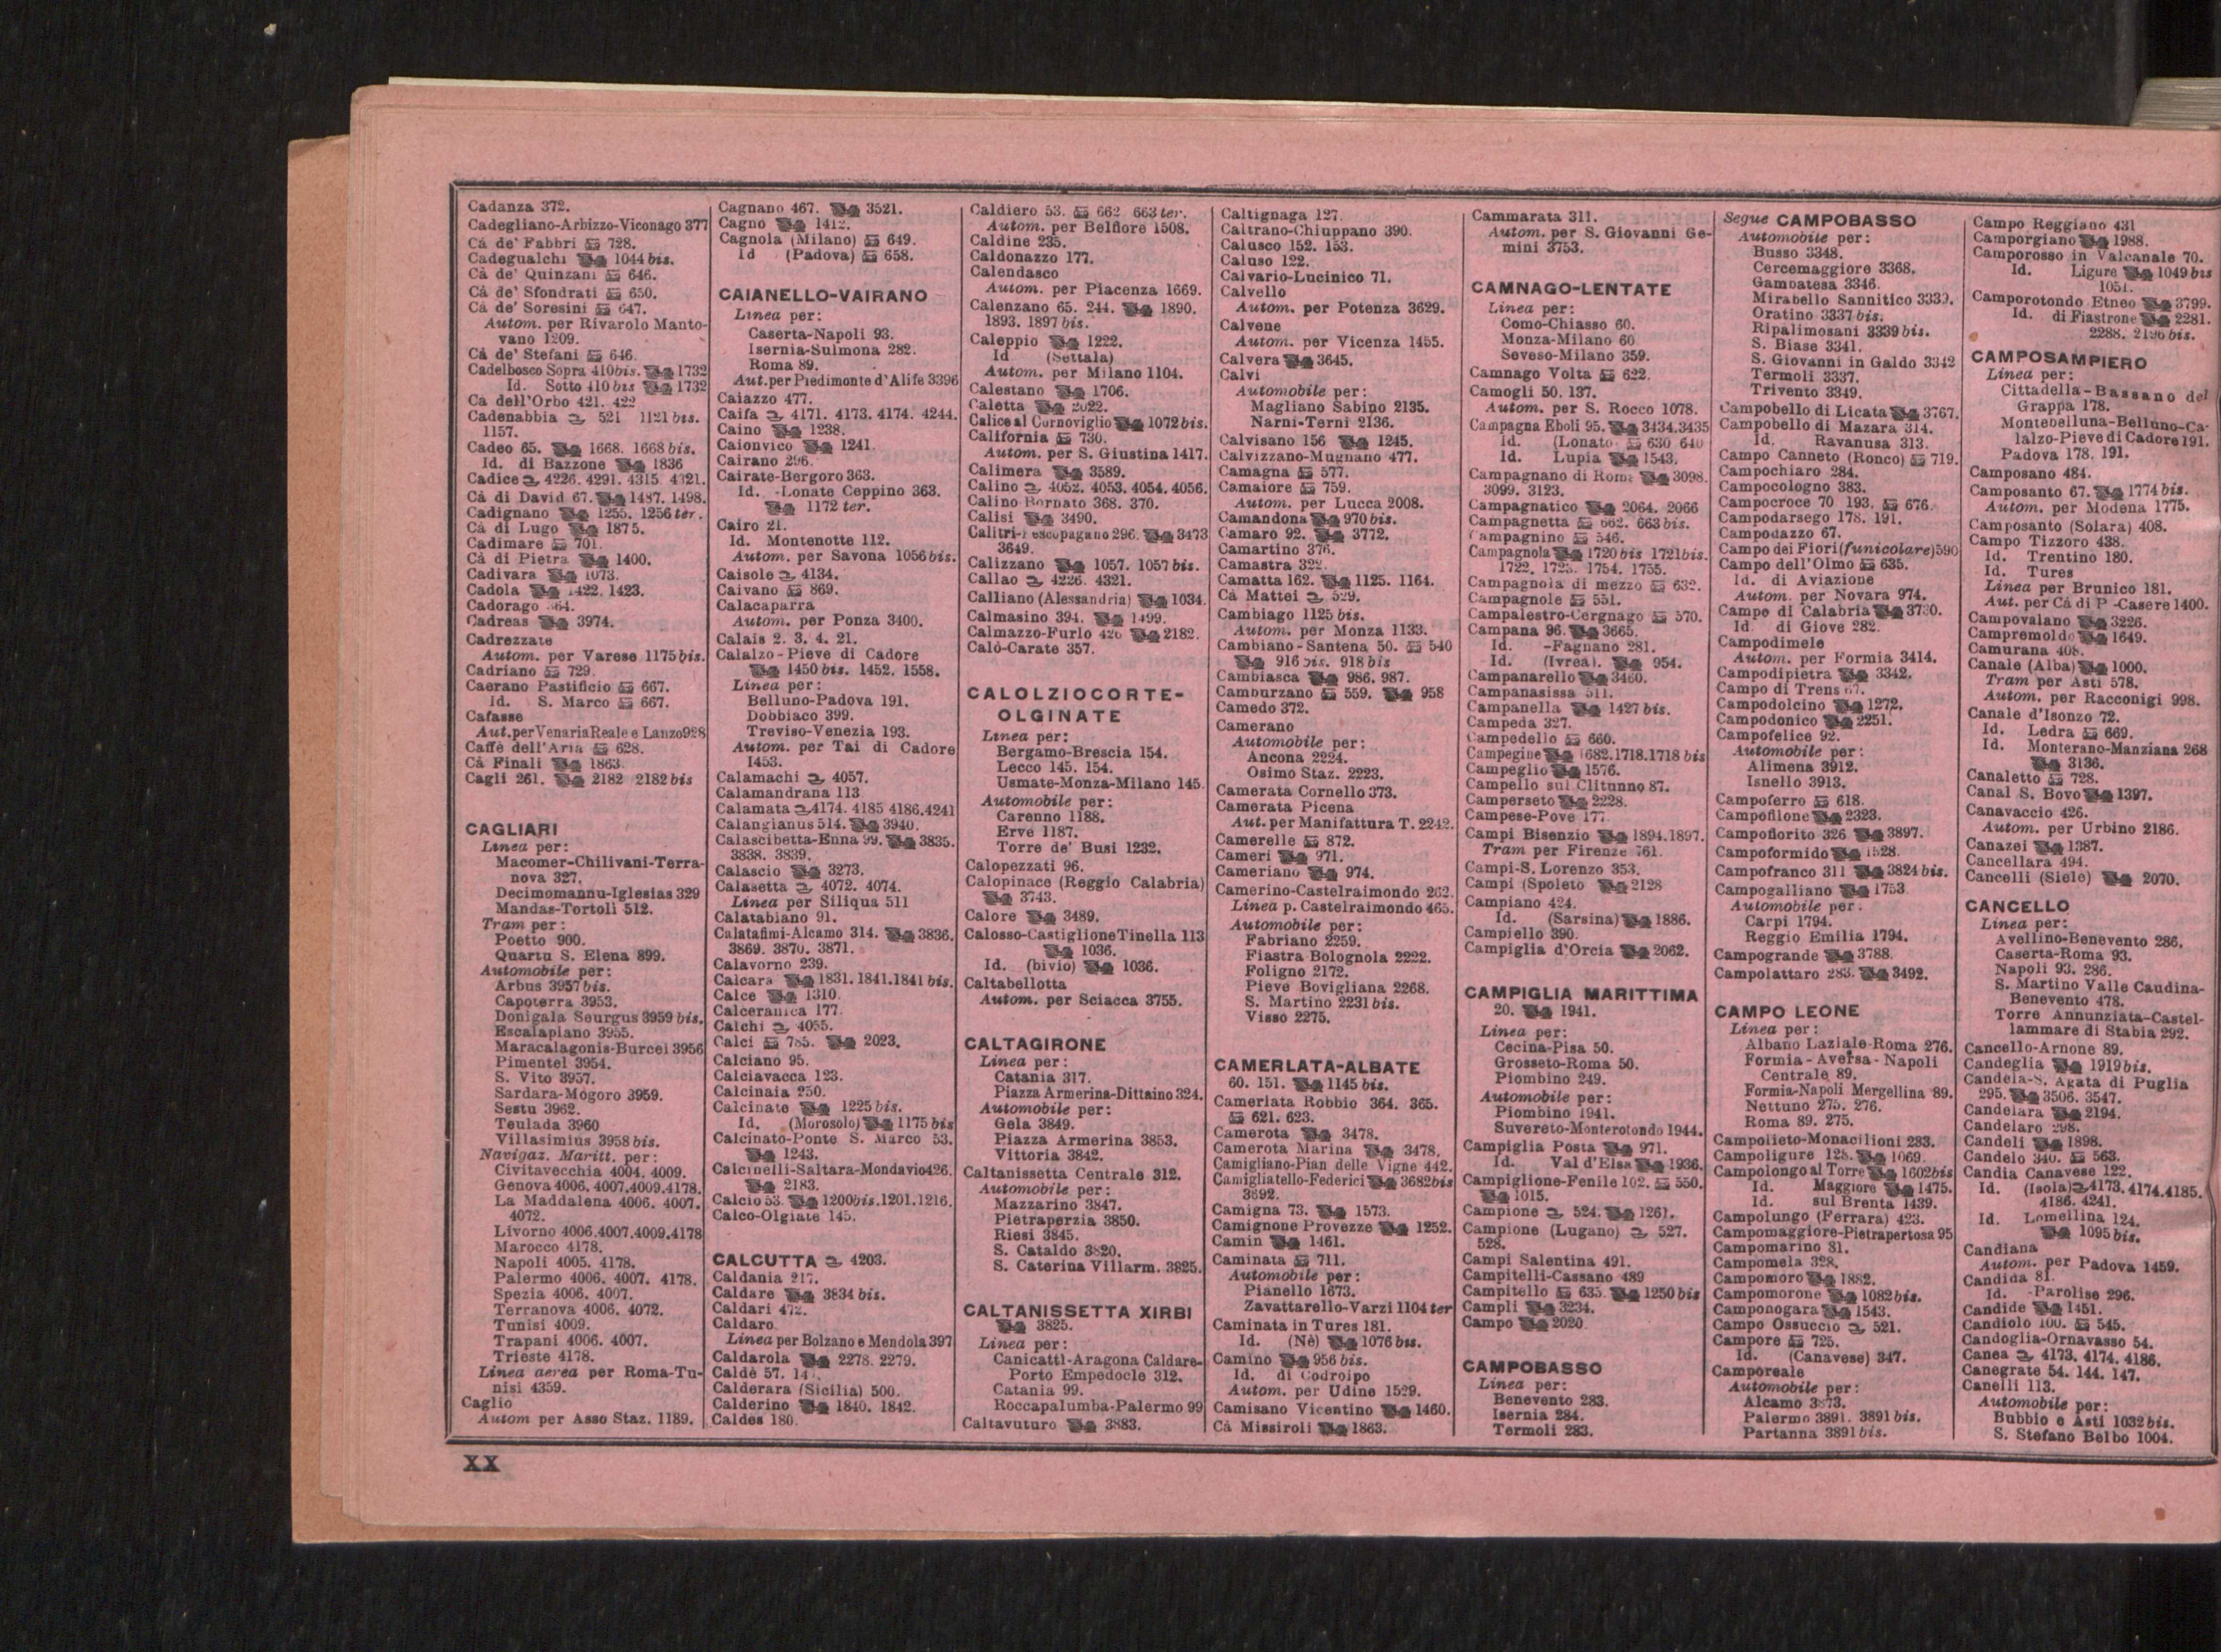 Cadanza 372.
Cadegliano-Arbizzo-Viconago 377
Cà de' Fabbri 728.
Cadegualchi 1044 bis.
Cà de' Quinzani 646.
Cà de' Sfondrati 650.
Cà de' Soresini 647.
Autom. per Rivarolo Manto-
vano 1209.
Cà de' Stefani 646.
Cadelbosco Sopra 410 bis. 1732
Id. Sotto 410 bis 1732
Cà dell'Orbo 421. 422
Cadenabbia 521 1121 bis.
1157.
Cadeo 65. 1668. 1668 bis.
Id. di Bazzone 1836
Cadice 4226. 4291. 4315. 4321.
Cà di David 67. 1487. 1498.
Cadignano 1255. 1256 ter.
Cà di Lugo 1875.
Cadimare 701.
Cà di Pietra 1400.
Cadivara 1073.
Cadola 1422. 1423.
Cadorago
Cadreas 3974.
Cadrezzate
Autom. per Varese 1175 bis.
Cadriano 729.
Caerano Pastificio 667.
Id. S. Marco 667.
Cafasse
Aut. per Venaria Reale e Lanzo 928
Caffè dell'Aria 628.
Cà Finali 1863.
Cagli 261. 2182 2182 bis
CAGLIARI
Linea per:
Macomer-Chilivani-Terra-
nova 327.
Decimomannu-Iglesias 329
Mandas-Tortoli 512.
Tram per:
Poetto 900.
Quartu S. Elena 899.
Automobile per:
Arbus 3957 bis.
Capoterra 3953.
Donigala Seurgus 3959 bis.
Escalaplano 3955.
Maracalagonis-Burcei 3956
Pimentel 3954.
S. Vito 3957.
Sardara-Mogoro 3959.
Sestu 3962.
Teulada 3960
Villasimius 3958 bis.
Navigaz. Maritt. per:
Civitavecchia 4004. 4009.
Genova 4006. 4007. 4009. 4178.
La Maddalena 4006. 4007.
4072.
Livorno 4006. 4007. 4009. 4178
Marocco 4178.
Napoli 4005. 4178.
Palermo 4006. 4007. 4178.
Spezia 4006. 4007.
Terranova 4006. 4072.
Tunisi 4009.
Trapani 4006. 4007.
Trieste 4178.
Linea aerea per Roma-Tu-
nisi 4359.
Caglio
Autom per Asso Staz. 1189.
Cagnano 467. 3521.
Cagno 1412.
Cagnola (Milano) 649.
Id (Padova) 658.
CAIANELLO-VAIRANO
Linea per:
Caserta-Napoli 93.
Isernia-Sulmona 282.
Roma 89.
Aut. per Piedimonte d'Alife 3396
Caiazzo 477.
Caifa 4171. 4173. 4174. 4244.
Caino 1238.
Caionvico 1241.
Cairano 296.
Cairate-Bergoro 363.
Id. -Lonate Ceppino 363.
1172 ter.
Cairo 21.
Id. Montenotte 112.
Autom. per Savona 1056 bis.
Caisole 4134.
Caivano 869.
Calacaparra
Autom. per Ponza 3400.
Calais 2. 3. 4. 21.
Calalzo-Pieve di Cadore
1450 bis. 1452. 1558.
Linea per:
Belluno-Padova 191.
Dobbiaco 399.
Treviso-Venezia 193.
Autom. per Tai di Cadore
1453.
Calamachi 4057.
Calamandrana 113
Calamata 4174. 4185 4186. 4241
Calangianus 514. 3940.
Calascibetta-Enna 99. 3835.
3838. 3839.
Calascio 3273.
Calasetta 4072. 4074.
Linea per Siliqua 511
Calatabiano 91.
Calatafimi-Alcamo 314. 3836.
3869. 3870. 3871.
Calavorno 239.
Calcara 1831. 1841. 1841 bis.
Calce 1310.
Calceranica 177.
Calchi 4055.
Calci 785. 2023.
Calciano 95.
Calciavacca 123.
Calcinaia 250.
Calcinate 1225 bis.
Id. (Morosolo) 1175 bis
Calcinato-Ponte S. Marco 53.
1243.
Calcinelli-Saltara-Mondavio 426.
2183.
Calcio 53. 1200 bis. 1201. 1216.
Calco-Olgiate 145.
CALCUTTA 4203.
Caldania 217.
Caldare 3834 bis.
Caldari 472.
Caldaro
Linea per Bolzano e Mendola 397
Caldarola 2278. 2279.
Caldè 57.
Calderara (Sicilia) 500.
Calderino 1840. 1842.
Caldes 180.
Caldiero 53. 662 663 ter.
Autom. per Belfiore 1508.
Caldine 235.
Caldonazzo 177.
Calendasco
Autom. per Piacenza 1669.
Calenzano 65. 244. 1890.
1893. 1897 bis.
Caleppio 1222.
Id (Settala)
Autom. per Milano 1104.
Calestano 1706.
Caletta 2022.
Calice al Cornoviglio 1072 bis.
California 730.
Autom. per S. Giustina 1417.
Calimera 3589.
Calino 4052. 4053. 4054. 4056.
Calino Bornato 368. 370.
Calisi 3490.
Calitri-Pescopagano 296. 3473
3649.
Calizzano 1057. 1057 bis.
Callao 4226. 4321.
Calliano (Alessandria) 1034.
Calmasino 394. 1499.
Calmazzo-Furlo 426 2182.
Calò-Carate 357.
CALOLZIOCORTE-
OLGINATE
Linea per:
Bergamo-Brescia 154.
Lecco 145. 154.
Usmate-Monza-Milano 145.
Automobile per:
Carenno 1188.
Erve 1187.
Torre de' Busi 1232.
Calopezzati 96.
Calopinace (Reggio Calabria)
3743.
Calore 3489.
Calosso-Castiglione Tinella 113
1036.
Id. (bivio) 1036.
Caltabellotta
Autom. per Sciacca 3755.
CALTAGIRONE
Linea per:
Catania 317.
Piazza Armerina-Dittaino 324.
Automobile per:
Gela 3849.
Piazza Armerina 3853.
Vittoria 3842.
Caltanissetta Centrale 312.
Automobile per:
Mazzarino 3847.
Pietraperzia 3850.
Riesi 3845.
S. Cataldo 3820.
S. Caterina Villarm. 3825.
CALTANISSETTA XIRBI
3825.
Linea per:
Canicattì-Aragona Caldare-
Porto Empedocle 312.
Catania 99.
Roccapalumba-Palermo 99
Caltavuturo 3883.
Caltignaga 127.
Caltrano-Chiuppano 390.
Calusco 152. 153.
Caluso 122.
Calvario-Lucinico 71.
Calvello
Autom. per Potenza 3629.
Calvene
Autom. per Vicenza 1455.
Calvera 3645.
Calvi
Automobile per:
Magliano Sabino 2135.
Narni-Terni 2136.
Calvisano 156 1245.
Calvizzano-Mugnano 477.
Camagna 577.
Camaiore 759.
Autom. per Lucca 2008.
Camandona 970 bis.
Camaro 92. 3772.
Camartino 376.
Camastra 322.
Camatta 162. 1125. 1164.
Cà Mattei 529.
Cambiago 1125 bis.
Autom. per Monza 1133.
Cambiano-Santena 50. 540
916 bis. 918 bis
Cambiasca 986. 987.
Camburzano 559. 958
Camedo 372.
Camerano
Automobile per:
Ancona 2224.
Osimo Staz. 2223.
Camerata Cornello 373.
Camerata Picena
Aut. per Manifattura T. 2242.
Camerelle 872.
Cameri 971.
Cameriano 974.
Camerino-Castelraimondo 262.
Linea p. Castelraimondo 465.
Automobile per:
Fabriano 2259.
Fiastra Bolognola 2222.
Foligno 2172.
Pieve Bovigliana 2268.
S. Martino 2231 bis.
Visso 2275.
CAMERLATA-ALBATE
60. 151. 1145 bis.
Camerlata Robbio 364. 365.
621. 623.
Camerota 3478.
Camerota Marina 3478.
Camigliano-Pian delle Vigne 442.
Camigliatello-Federici 3682 bis
3692.
Camigna 73. 1573.
Camignone Provezze 1252.
Camin 1461.
Caminata 711.
Automobile per:
Pianello 1673.
Zavattarello-Varzi 1104 ter
Caminata in Tures 181.
Id. (Nè) 1076 bis.
Camino 956 bis.
Id. di Codroipo
Autom. per Udine 1529.
Camisano Vicentino 1460.
Cà Missiroli 1863.
Cammarata 311.
Autom. per S. Giovanni Ge-
mini 3753.
CAMNAGO-LENTATE
Linea per:
Como-Chiasso 60.
Monza-Milano 60
Seveso-Milano 359.
Camnago Volta 622.
Camogli 50. 137.
Autom. per S. Rocco 1078.
Campagna Eboli 95. 3434. 3435
Id. (Lonato 630 640
Id. Lupia 1543.
Campagnano di Roma 3098.
3099. 3123.
Campagnatico 2064. 2066
Campagnetta 662. 663 bis.
Campagnino 546.
Campagnola 1720 bis 1721 bis.
1722. 1723. 1754. 1755.
Campagnola di mezzo 632.
Campagnole 551.
Campalestro-Cergnago 570.
Campana 96. 3665.
Id. -Fagnano 281.
Id. (Ivrea). 954.
Campanarello 3460.
Campanasissa 511.
Campanella 1427 bis.
Campeda 327.
Campedello 660.
Campegine 1682. 1718. 1718 bis
Campeglio 1576.
Campello sul Clitunno 87.
Camperseto 2228.
Campese-Pove 177.
Campi Bisenzio 1894. 1897.
Tram per Firenze 761.
Campi-S. Lorenzo 353.
Campi (Spoleto 2128
Campiano 424.
Id. (Sarsina) 1886.
Campiello 390.
Campiglia d'Orcia 2062.
CAMPIGLIA MARITTIMA
20. 1941.
Linea per:
Cecina-Pisa 50.
Grosseto-Roma 50.
Piombino 249.
Automobile per:
Piombino 1941.
Suvereto-Monterotondo 1944.
Campiglia Posta 971.
Id. Val d'Elsa 1936.
Campiglione-Fenile 102. 550.
1015.
Campione 524. 1261.
Campione (Lugano) 527.
528.
Campi Salentina 491.
Campitelli-Cassano 489
Campitello 635. 1250 bis
Campli 3234.
Campo 2020
CAMPOBASSO
Linea per:
Benevento 283.
Isernia 284.
Termoli 283.
Segue CAMPOBASSO
Automobile per:
Busso 3348.
Cercemaggiore 3368.
Gambatesa 3346.
Mirabello Sannitico 3339.
Oratino 3337 bis.
Ripalimosani 3339 bis.
S. Biase 3341.
S. Giovanni in Galdo 3342
Termoli 3337.
Trivento 3349.
Campobello di Licata 3767.
Campobello di Mazara 314.
Id. Ravanusa 313.
Campo Canneto (Ronco) 719.
Campochiaro 284.
Campocologno 383.
Campocroce 70 193. 676.
Campodarsego 178. 191.
Campodazzo 67.
Campo dei Fiori (funicolare) 590
Campo dell'Olmo 635.
Id. di Aviazione
Autom. per Novara 974.
Campo di Calabria 3730.
Id. di Giove 282.
Campodimele
Autom. per Formia 3414.
Campodipietra 3342.
Campo di Trens 67.
Campodolcino 1272.
Campodonico 2251.
Campofelice 92.
Automobile per:
Alimena 3912.
Isnello 3913.
Campoferro 618.
Campofilone 2323.
Campofiorito 326 3897.
Campoformido 1528.
Campofranco 311 3824 bis.
Campogalliano 1753
Automobile per:
Carpi 1794.
Reggio Emilia 1794.
Campogrande 3788.
Campolattaro 283. 3492.
CAMPO LEONE
Linea per:
Albano Laziale-Roma 276.
Formia-Aversa-Napoli
Centrale 89.
Formia-Napoli Mergellina 89.
Nettuno 275. 276.
Roma 89. 275.
Campolieto-Monacilioni 283.
Campoligure 128. 1069.
Campolongo al Torre 1602 bis
Id. Maggiore 1475.
Id. sul Brenta 1439.
Campolungo (Ferrara) 423.
Campomaggiore-Pietrapertosa 95
Campomarino 81.
Campomela 328.
Campomoro 1882.
Campomorone 1082 bis.
Camponogara 1543.
Campo Ossuccio 521.
Campore 725.
Id. (Canavese) 347.
Camporeale
Automobile per:
Alcamo 3873.
Palermo 3891. 3891 bis.
Partanna 3891 bis.
Campo Reggiano 431
Camporgiano 1988.
Camporosso in Valcanale 70.
Id. Ligure 1049 bis
1051.
Camporotondo Etneo 3799.
Id. di Fiastrone 2281.
2288. 2196 bis.
CAMPOSAMPIERO
Linea per:
Cittadella-Bassano del
Grappa 178.
Montebelluna-Belluno-Ca-
lalzo-Pieve di Cadore 191.
Padova 178. 191.
Camposano 484.
Camposanto 67. 1774 bis.
Autom. per Modena 1775.
Camposanto (Solara) 408.
Campo Tizzoro 438.
Id. Trentino 180.
Id. Tures
Linea per Brunico 181.
Aut. per Cà di P -Casere 1400.
Campovalano 3226.
Campremoldo 1649.
Camurana 408.
Canale (Alba) 1000.
Tram per Asti 578.
Autom. per Racconigi 998.
Canale d'Isonzo 72.
Id. Ledra 669.
Id. Monterano-Manziana 268
3136.
Canaletto 728.
Canal S. Bovo 1397.
Canavaccio 426.
Autom. per Urbino 2186.
Canazei 1387.
Cancellara 494.
Cancelli (Siele) 2070.
CANCELLO
Linea per:
Avellino-Benevento 286.
Caserta-Roma 93.
Napoli 93. 286.
S. Martino Valle Caudina-
Benevento 478.
Torre Annunziata-Castel-
lammare di Stabia 292.
Cancello-Arnone 89.
Candeglia 1919 bis.
Candela-S. Agata di Puglia
295. 3506. 3547.
Candelara 2194.
Candelaro 298.
Candeli 1898.
Candelo 340. 563.
Candia Canavese 122.
Id. (Isola) 4173. 4174. 4185.
4186. 4241.
Id. Lomellina 124.
1095 bis.
Candiana
Autom. per Padova 1459.
Candida 81.
Id. -Parolise 296.
Candide 1451.
Candiolo 100. 545.
Candoglia-Ornavasso 54.
Canea 4173. 4174. 4186.
Canegrate 54. 144. 147.
Canelli 113.
Automobile per:
Bubbio e Asti 1032 bis.
S. Stefano Belbo 1004.
XX